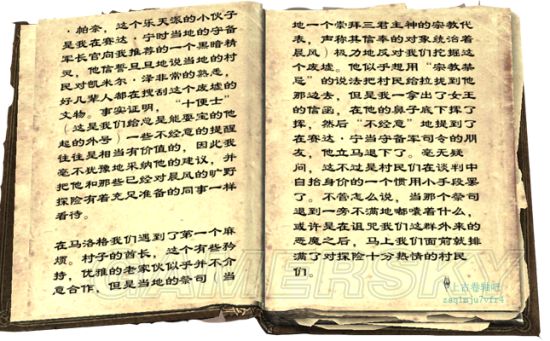 ·帕奈，这个乐天派的小伙子
是我在赛达·宁时当地的守备
军长官向我推荐的一个黑暗精
灵，他信誓旦旦地说当地的村
民对凯米尔·泽非常的熟悉，
好几辈人都在搜刮这个废墟的
文物。事实证明，“十便士”
（这是我们给总是能要宝的他
起的外号）一些不经意的提醒
往往是相当有价值的，因此我
毫不犹豫地采纳他的建议，并
把他和那些已经对晨风的旷野
探险有着充足准备的同事一样
看待。
在马洛格我们遇到了第一个麻
烦。村子的酋长，这个有些矜
持，优雅的老家伙似乎并不介
意合作，但是当地的祭司（当
地一个崇拜三君主神的宗教代
表，声称其信奉的对象统治着
晨风）极力地反对我们挖掘这
个废墟。他似乎想用“宗教禁
忌”的说法把村民给拉拢到他
那边去，但是我一拿出了女王
的信函，在他的鼻子底下挥了
挥，然后“不经意”地提到了
在赛达·宁当守备军司令的朋
友，他立马退下了。毫无疑
问，这不过是村民们在谈判中
自抬身价的一个惯用小手段罢
了。不管怎么说，当那个祭司
退到一旁不满地都囔着什么，
或许是在诅咒我们这群外来的
恶魔之后，马上我们面前就排
满了对探险十分热情的村民
们。
GAMERSKY
上古卷轴吧
zaq1mju7vfr4